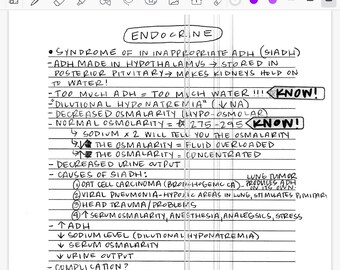 ENDOCRINE
• SYNDROME OF IN INAPPROPRIATE ADH (SIADH)
- ADH MADE IN HYPOTHALAMUS → STORED IN
POSTERIOR PITUITARY → MAKES KIDNEYS HOLD ON
TO WATER!
- TOO MUCH ADH = TOO MUCH WATER!!! KNOW!
"DILUTIONAL HYPONATREMIA" (↓NA)
- DECREASED OSMALARITY (HYPO-OSMOLAR)
- NORMAL OSMOLARITY = 275-295 KNOW!
↳ SODIUM X 2 WILL TELL YOU THE OSMALARITY
↳ ↓ THE OSMALARITY = FLUID OVERLOADED
↳ ↑ THE OSMALARITY = CONCENTRATED
- DECREASED URINE OUTPUT
- CAUSES OF SIADH:
LUNG TUMOR PRODUCES ADH ON ITS OWN
① OAT CELL CARCINOMA (BRONCHOGENIC CA) -
② VIRAL PNEUMONIA - HYPOXIC AREAS IN LUNG, STIMULATES PITUITARY
③ HEAD TRAUMA/PROBLEMS
④ ↑ SERUM OSMALARITY, ANESTHESIA, ANALGESICS, STRESS
- ↑ ADH
↓ SODIUM LEVEL (DILUTIONAL HYPONATREMIA)
↓ SERUM OSMALARITY
↓ URINE OUTPUT
- COMPLICATION?